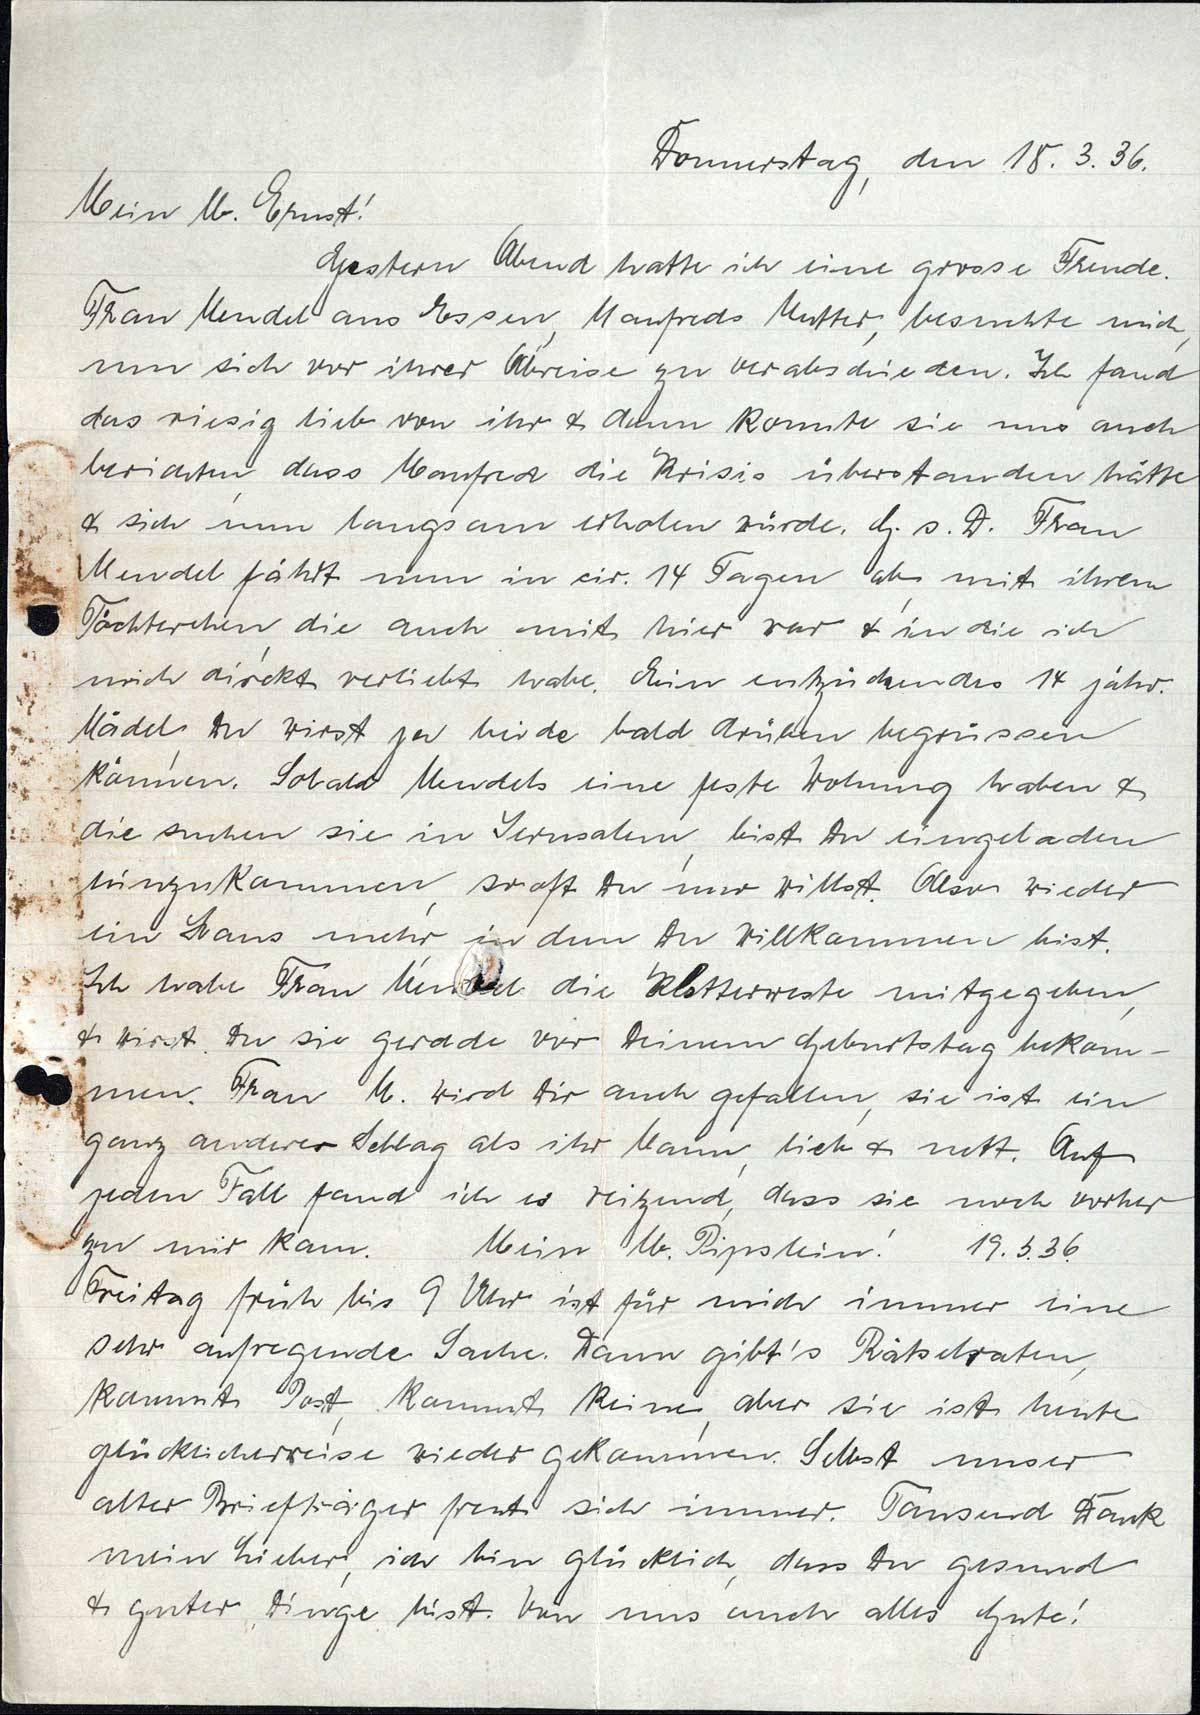 Donnerstag, den 18. 3. 36.
Mein lb. Ernst!
Gestern Abend hatte ich eine grosse Freude.
Frau Mendel aus Essen, Manfreds Mutter, besuchte mich,
um sich vor ihrer Abreise zu verabschieden. Ich fand
das riesig lieb von ihr & dann konnte sie uns auch
berichten, dass Manfred die Krisis überstanden hätte
& sich nun langsam erholen würde. G. s. D. Frau
Mendel fährt nun in cir. 14 Tagen ab, mit ihrem
Töchterchen die auch mit hier war & in die ich
mich direkt verliebt habe. Ein entzückendes 14 jähr.
Mädel. Du wirst ja beide bald drüben begrüssen
können. Sobald Mendels eine feste Wohnung haben &
die suchen sie in Jerusalem, bist Du eingeladen
hinzukommen, sooft Du nur willst. Also wieder
ein Haus mehr in dem Du willkommen bist.
Ich habe Frau Mendel die Kletterweste mitgegeben,
& wirst Du sie gerade vor Deinem Geburtstag bekom-
men. Frau M. wird Dir auch gefallen, sie ist ein
ganz anderer Schlag als ihr Mann, lieb & nett. Auf
jeden Fall fand ich es reizend, dass sie noch vorher
zu mir kam. Mein lb. Pipslein! 19. 3. 36.
Freitag früh bis 9 Uhr ist für mich immer eine
sehr aufregende Sache. Dann gibt's Rätselraten,
kommt Post, kommt keine, aber sie ist heute
glücklicherweise wieder gekommen. Selbst unser
alter Briefträger freut sich immer. Tausend Dank
mein Lieber, ich bin glücklich, dass Du gesund
& guter Dinge bist. Von uns auch alles Gute!